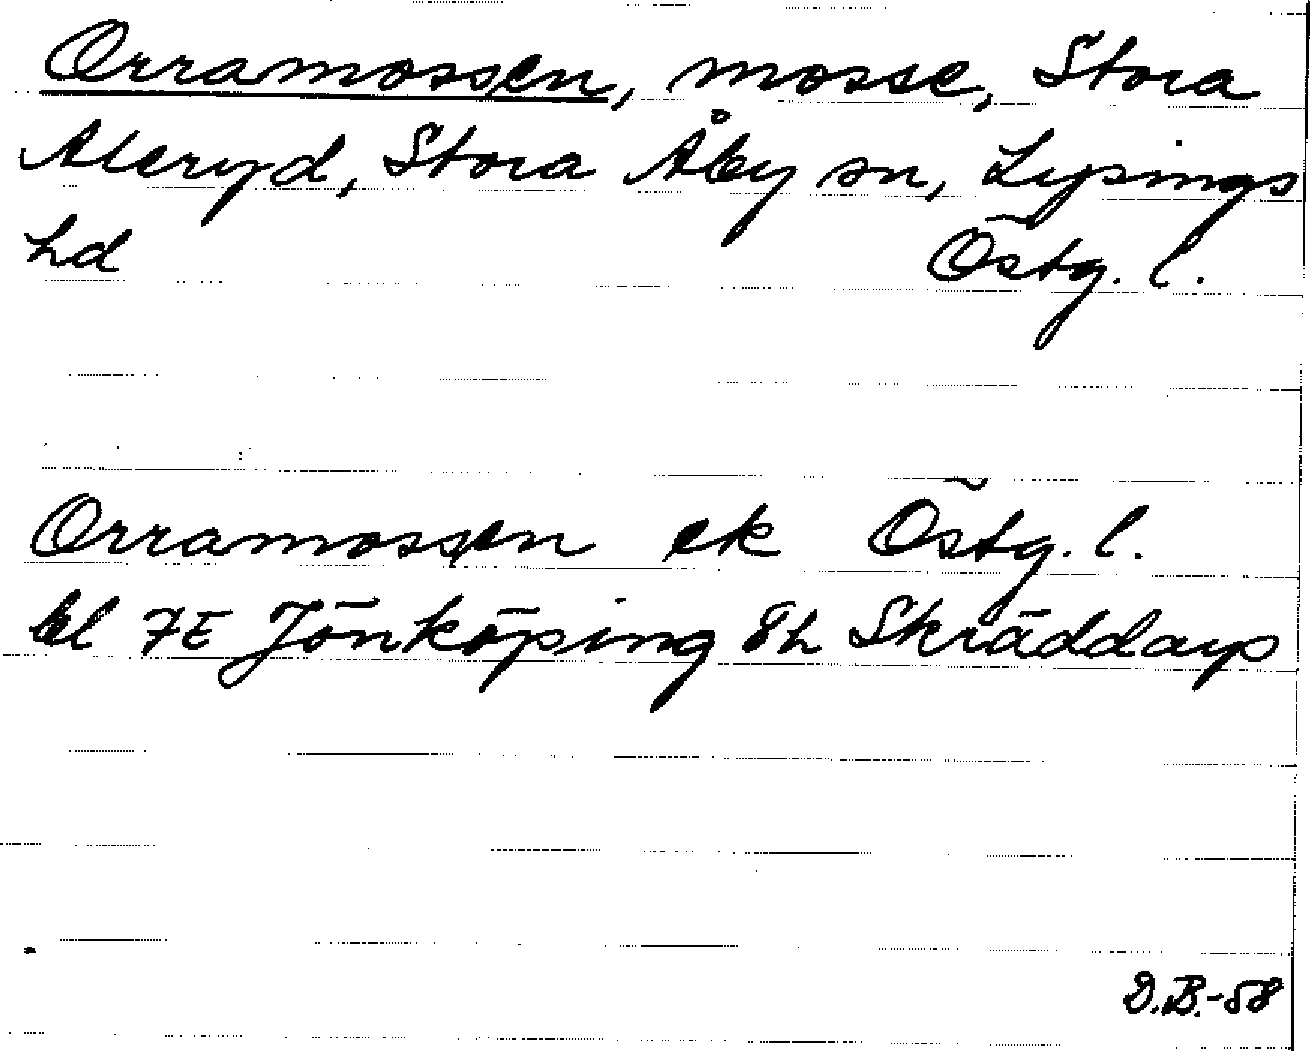 Orramossen, mosse, Stora
Aleryd, Stora Åby sn, Lysings
hd Östg. l.
Orramossen ek Östg. l.
bl 7E Jönköping 8h Skräddarp
D.B.-58